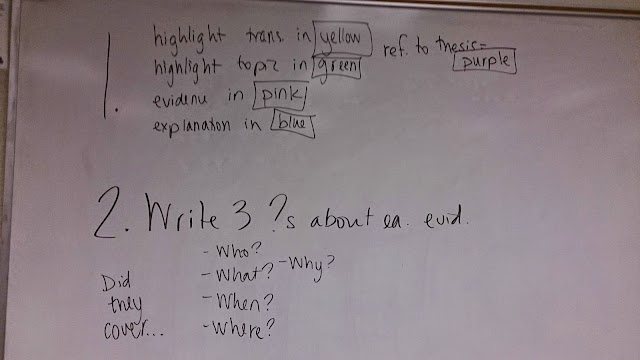 1. highlight trans. in yellow
highlight topic in green
evidence in pink
explanation in blue
ref. to thesis=
purple
2. Write 3 ?s about ea. evid.
Did
they
cover...
- Who?
- What? - Why?
- When?
- Where?